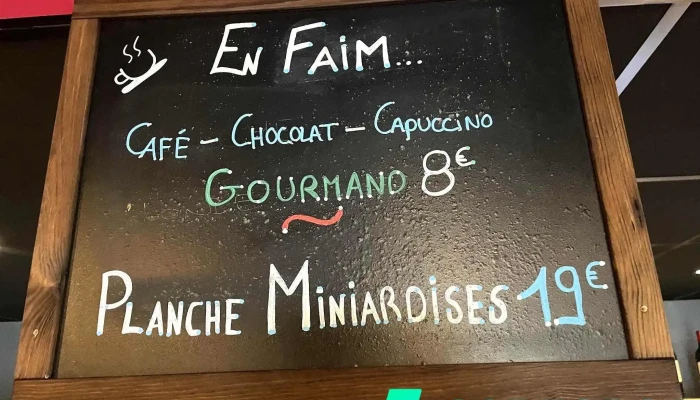 En Faim...
Café - Chocolat - Capuccino
Gourmand 8€
Planche Miniardises 19€